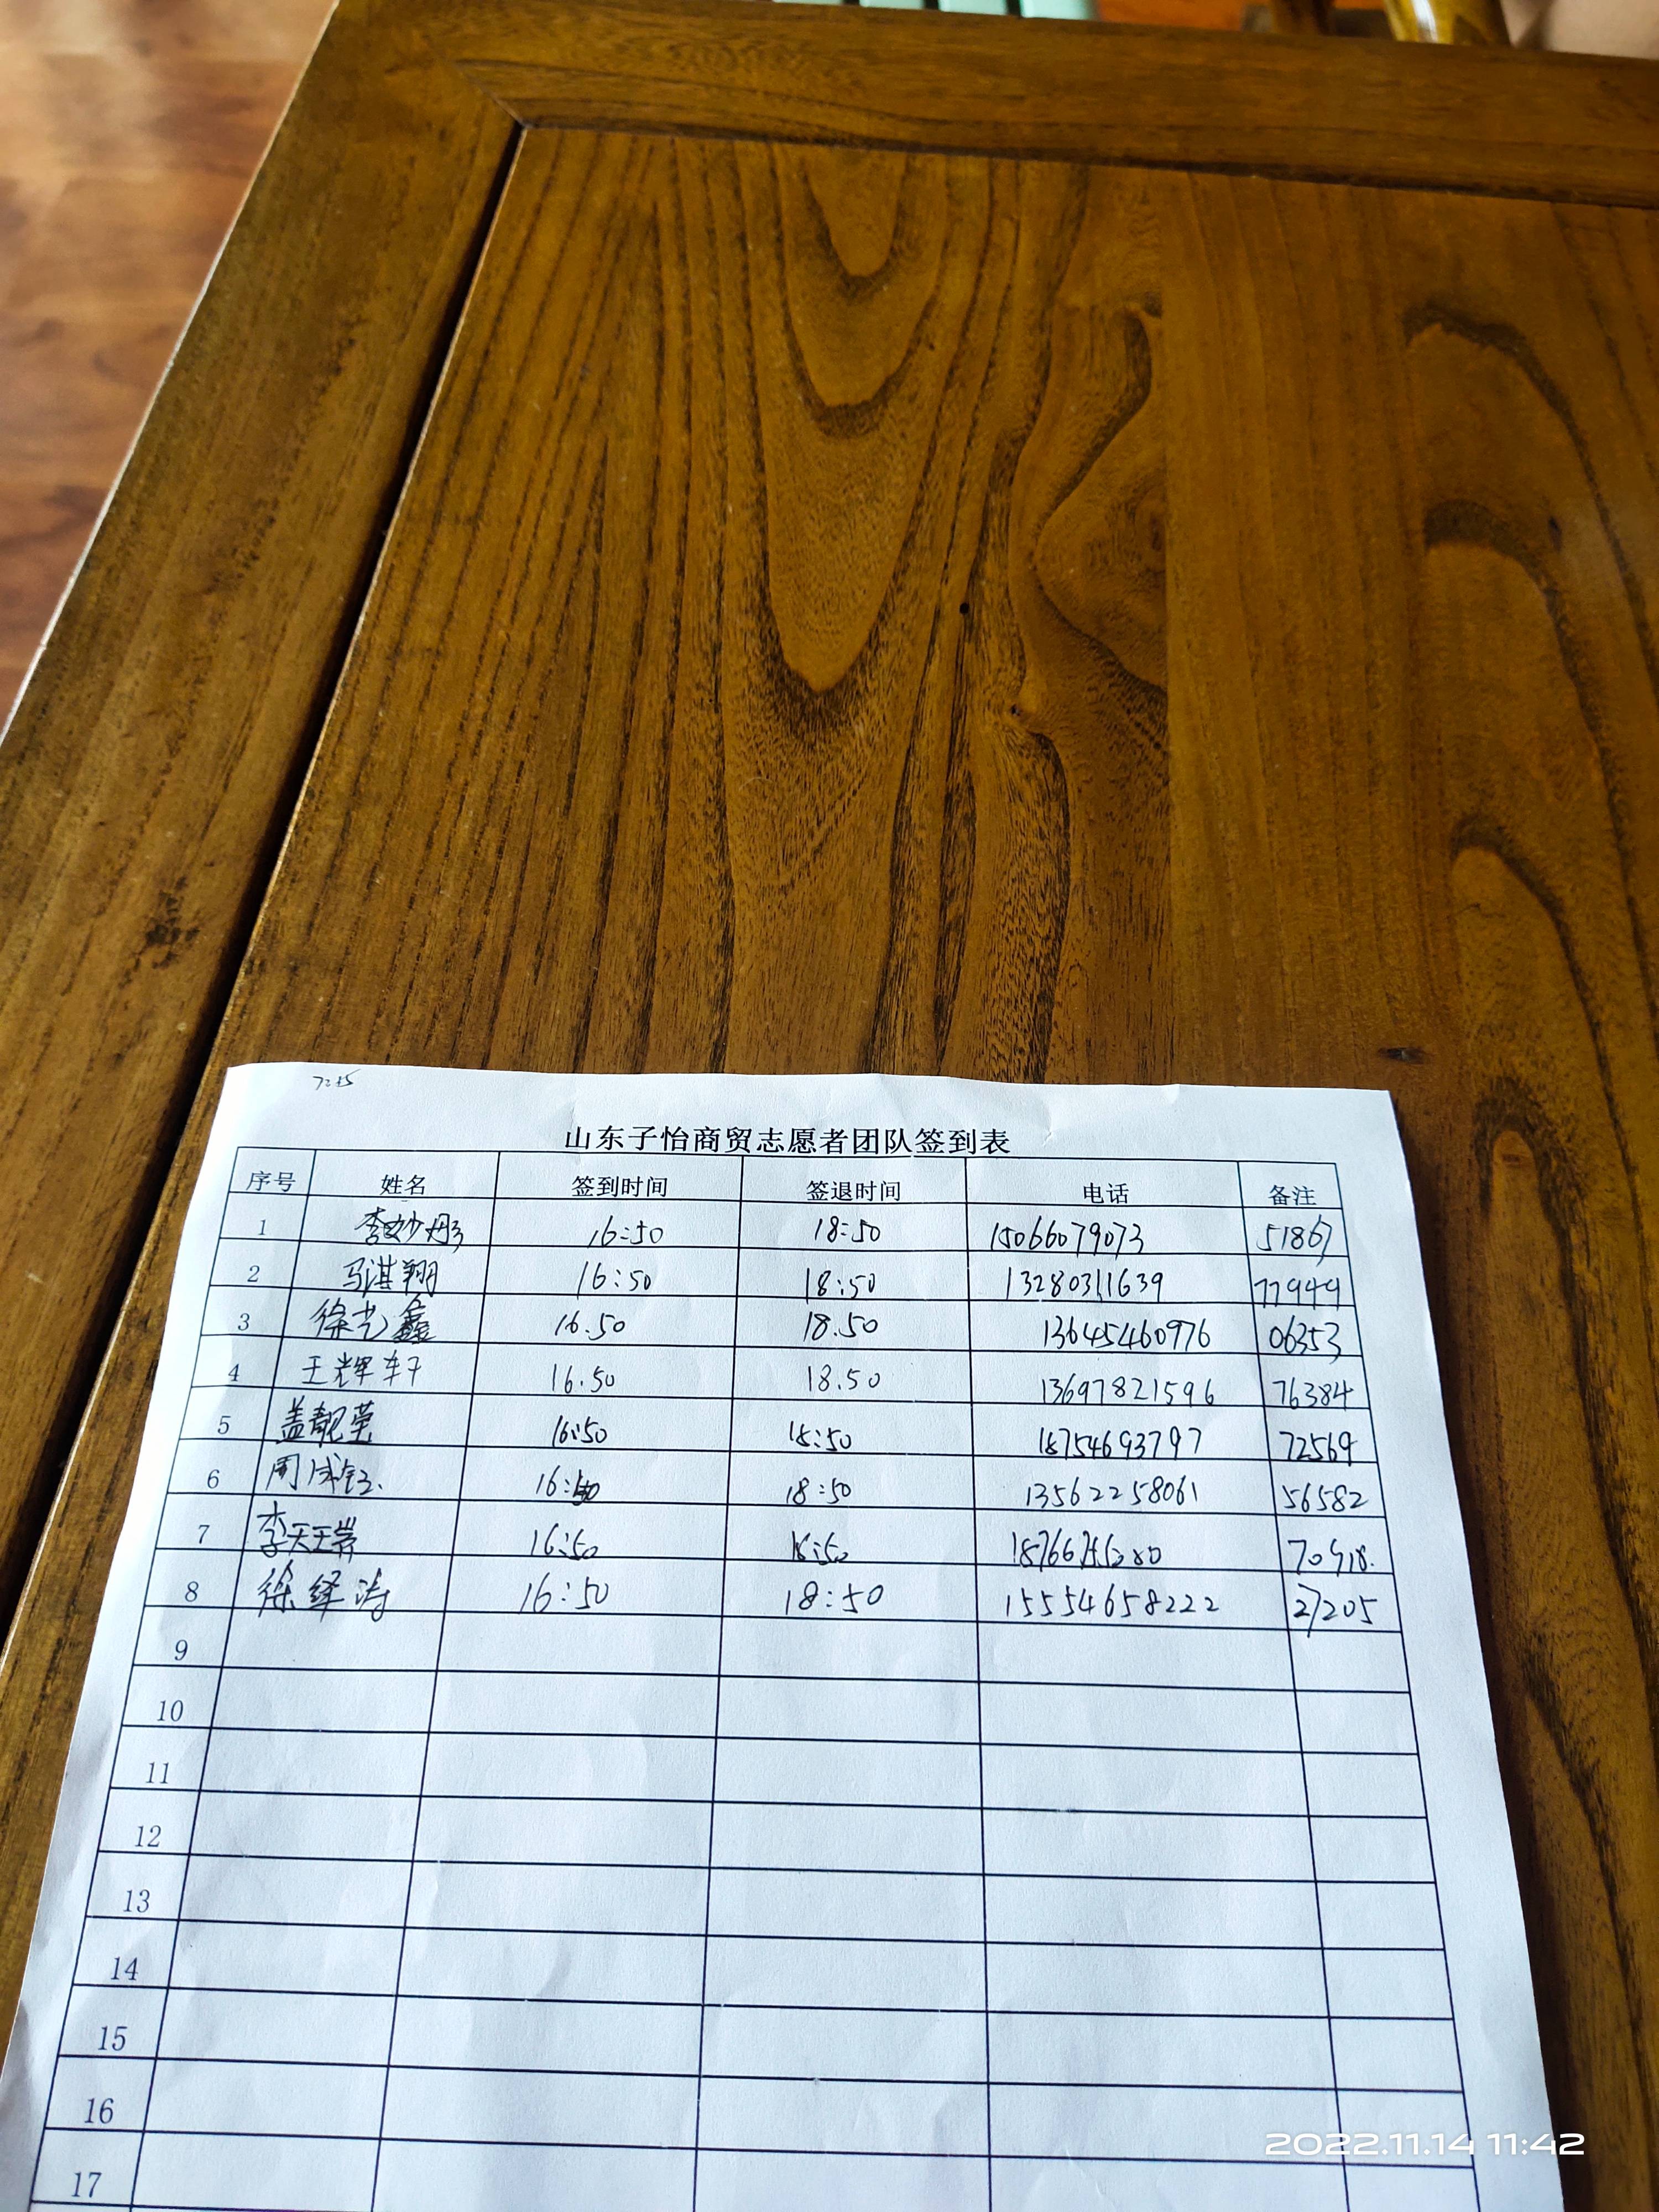 山东子怡商贸志愿者团队签到表
序号 姓名 签到时间 签退时间 电话 备注
1 李妙丹 16:50 18:50 15066079073 51867
2 马淇翔 16:50 18:50 13280311639 77949
3 徐艺鑫 16.50 18.50 13645460976 06353
4 王辉轩 16.50 18.50 13697821596 76384
5 盖靓莹 16:50 18:50 18754693797 72569
6 周成 16:50 18:50 13562258061 56582
7 李天 16:50 18:50 70918.
8 徐绎涛 16:50 18:50 15554658222 27205
9
10
11
12
13
14
15
16
17
2022.11.14 11:42